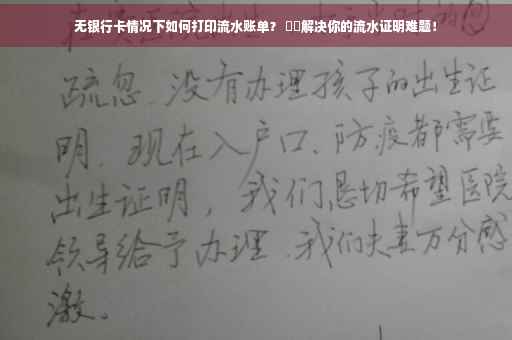 无银行卡情况下如何打印流水账单? 解决你的流水证明难题!
疏忽、没有办理孩子的出生证
明. 现在入户口、防疫都需要
出生证明, 我们恳切希望医院
领导给予办理. 我们夫妻万分感
激。